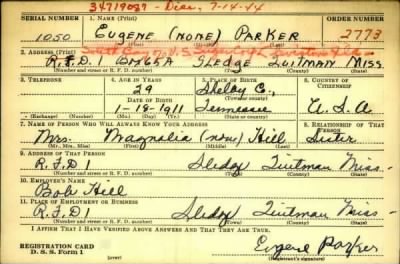 34719087 - Disc. 7-14-44
SERIAL NUMBER 1. NAME (Print) ORDER NUMBER
1050 EUGENE (NONE) PARKER 2773
(First) (Middle) (Last)
2. ADDRESS (Print)
R.F.D. 1 BOX 65A SLEDGE QUITMAN MISS.
(Number and street or R. F. D. number) (Town) (County) (State)
3. TELEPHONE 4. AGE IN YEARS 5. PLACE OF BIRTH 6. COUNTRY OF CITIZENSHIP
29 Shelby Co.,
DATE OF BIRTH (Town or county)
1-18-1911 Tennessee U.S.A
(Exchange) (Number) (Mo.) (Day) (Yr.) (State or country)
7. NAME OF PERSON WHO WILL ALWAYS KNOW YOUR ADDRESS 8. RELATIONSHIP OF THAT PERSON
Mrs. Magnolia (none) Hill Sister
(Mr., Mrs., Miss) (First) (Middle) (Last)
9. ADDRESS OF THAT PERSON
R.F.D1 Sledge Quitman Miss-
(Number and street or R. F. D. number) (Town) (County) (State)
10. EMPLOYER'S NAME
Bob Hill
11. PLACE OF EMPLOYMENT OR BUSINESS
R.F.D1 Sledge Quitman Miss-
(Number and street or R. F. D. number) (Town) (County) (State)
I AFFIRM THAT I HAVE VERIFIED ABOVE ANSWERS AND THAT THEY ARE TRUE.
REGISTRATION CARD
D. S. S. Form 1 Eugene Parker
(Registrant's signature)